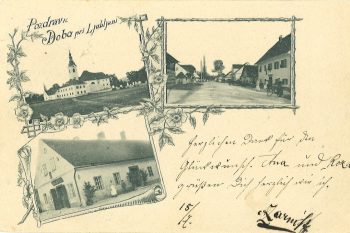 Pozdrav iz
Doba pri Ljubljani
Herzlichen Dank für den
Glückwunsch. Ana und Roza
grüßen Dich herzlich wie ich.
18/